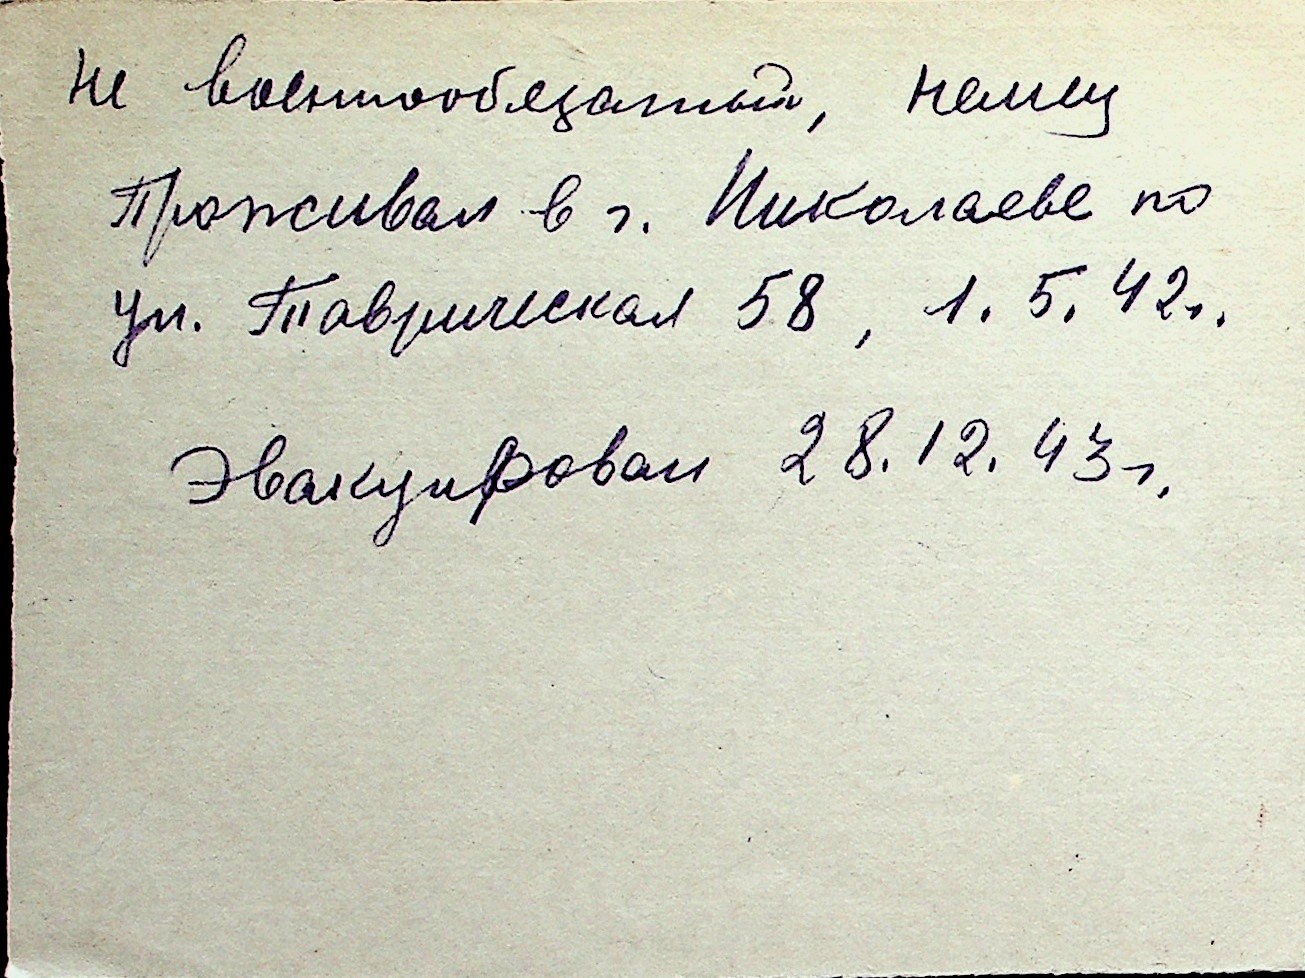 Не военнообязанный, немец
Проживал в г. Николаеве по
ул. Таврическая 58, 1.5.42г.
Эвакуирован 28.12.43г.